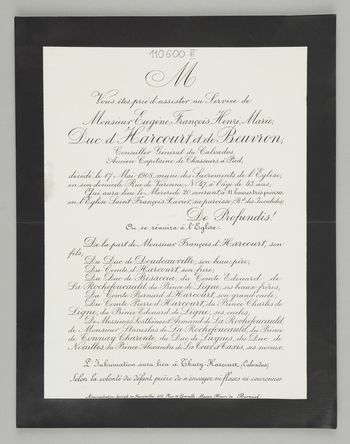 110600 III
M
Vous êtes prié d'assister au Service de
Monsieur Eugène, François, Henri, Marie,
Duc d'Harcourt et de Beuvron,
Conseiller Général du Calvados,
Ancien Capitaine de Chasseurs à Pied,
décédé, le 17 Mai 1908, muni des Sacrements de l'Eglise,
en son domicile Rue de Varenne, N° 47, à l'âge de 43 ans,
Qui aura lieu le Mercredi 20 courant à 11 heures précises,
en l'Eglise Saint François Xavier, sa paroisse (Bd des Invalides)
De Profundis!
On se réunira à l'Eglise.
De la part de Monsieur François d'Harcourt, son
fils,
Du Duc de Doudeauville, son beau-père;
Du Comte d'Harcourt, son frère;
Du Duc de Bisaccia, du Comte Edouard de
La Rochefoucauld, du Prince de Ligne, ses beaux-frères;
Du Comte Bernard d'Harcourt, son grand oncle;
Du Comte Pierre d'Harcourt, du Prince Charles de
Ligne, du Prince Edouard de Ligne, ses oncles;
De Messieurs Sosthènes et Armand de La Rochefoucauld,
de Monsieur Stanislas de La Rochefoucauld, du Prince
de Connay Charente, du Duc de Luynes, du Duc de
Noailles, du Prince Alexandre de La Tour et Taxis, ses neveux.
L'Inhumation aura lieu à Thury-Harcourt, (Calvados).
Selon la volonté du défunt, prière de n'envoyer ni fleurs ni couronnes
Rue de Grenelle Maison Henri de Borniol